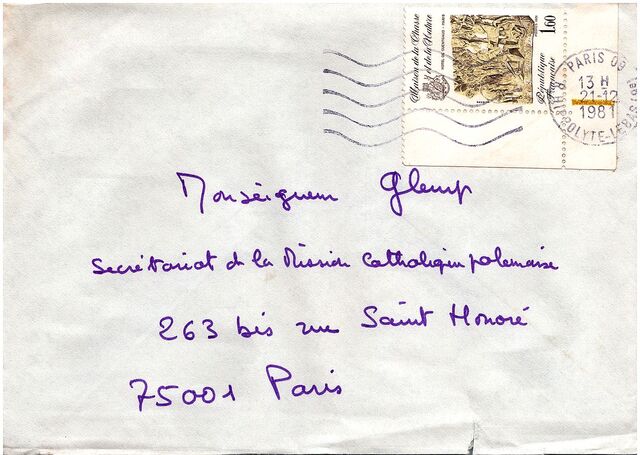 Maison de la Chasse
et de la Nature
HOTEL DE GUENEGAUD - PARIS
1,60
République
Française
PARIS 09
13 H
21-12
1981
R. HIPPOLYTE-LEBAS (9e)
Monseigneur Glemp
Secrétariat de la Mission Catholique polonaise
263 bis rue Saint Honoré
75001 Paris